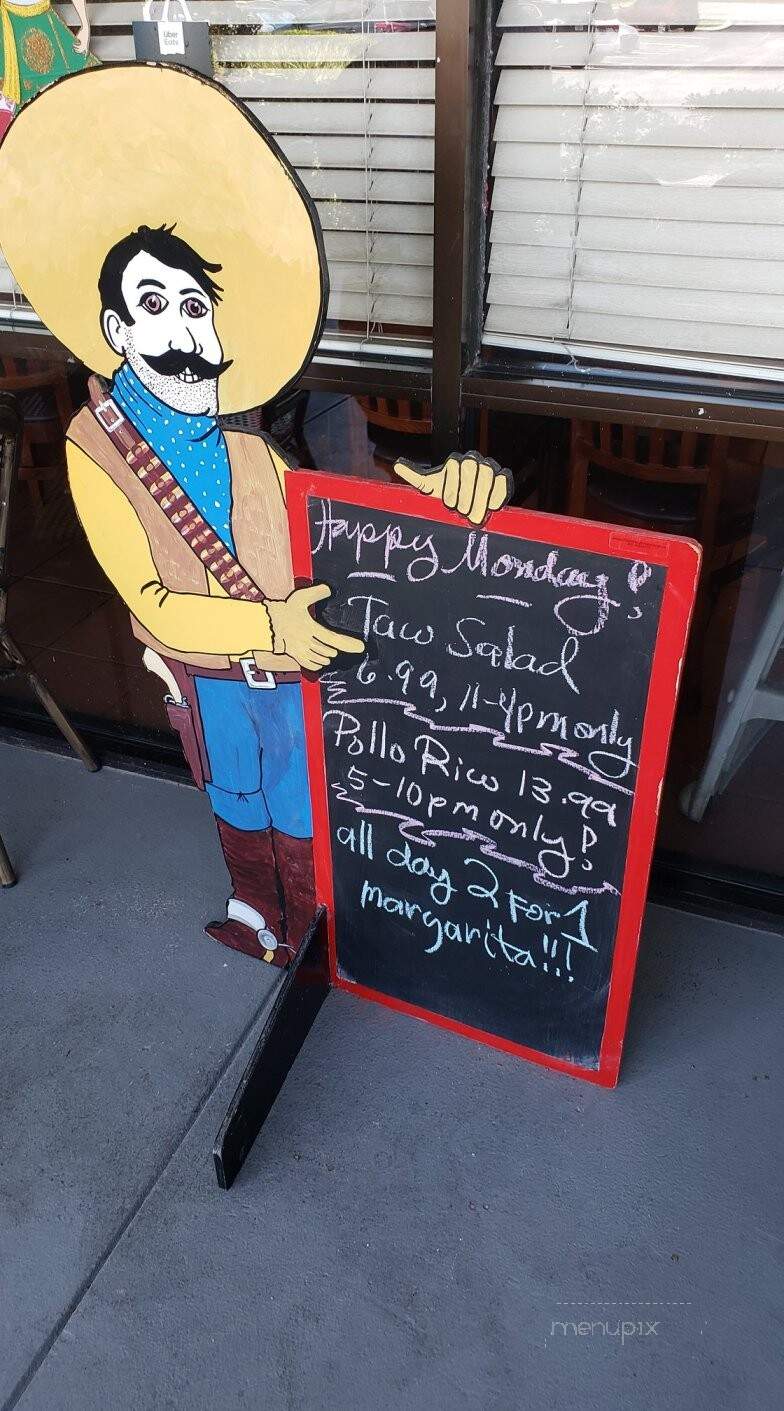 Uber
Eats
Happy Monday!
Taco Salad
6.99, 11-4pm only
Pollo Rico 13.99
5-10pm only!
all day 2 For 1
margarita!!!
menupix